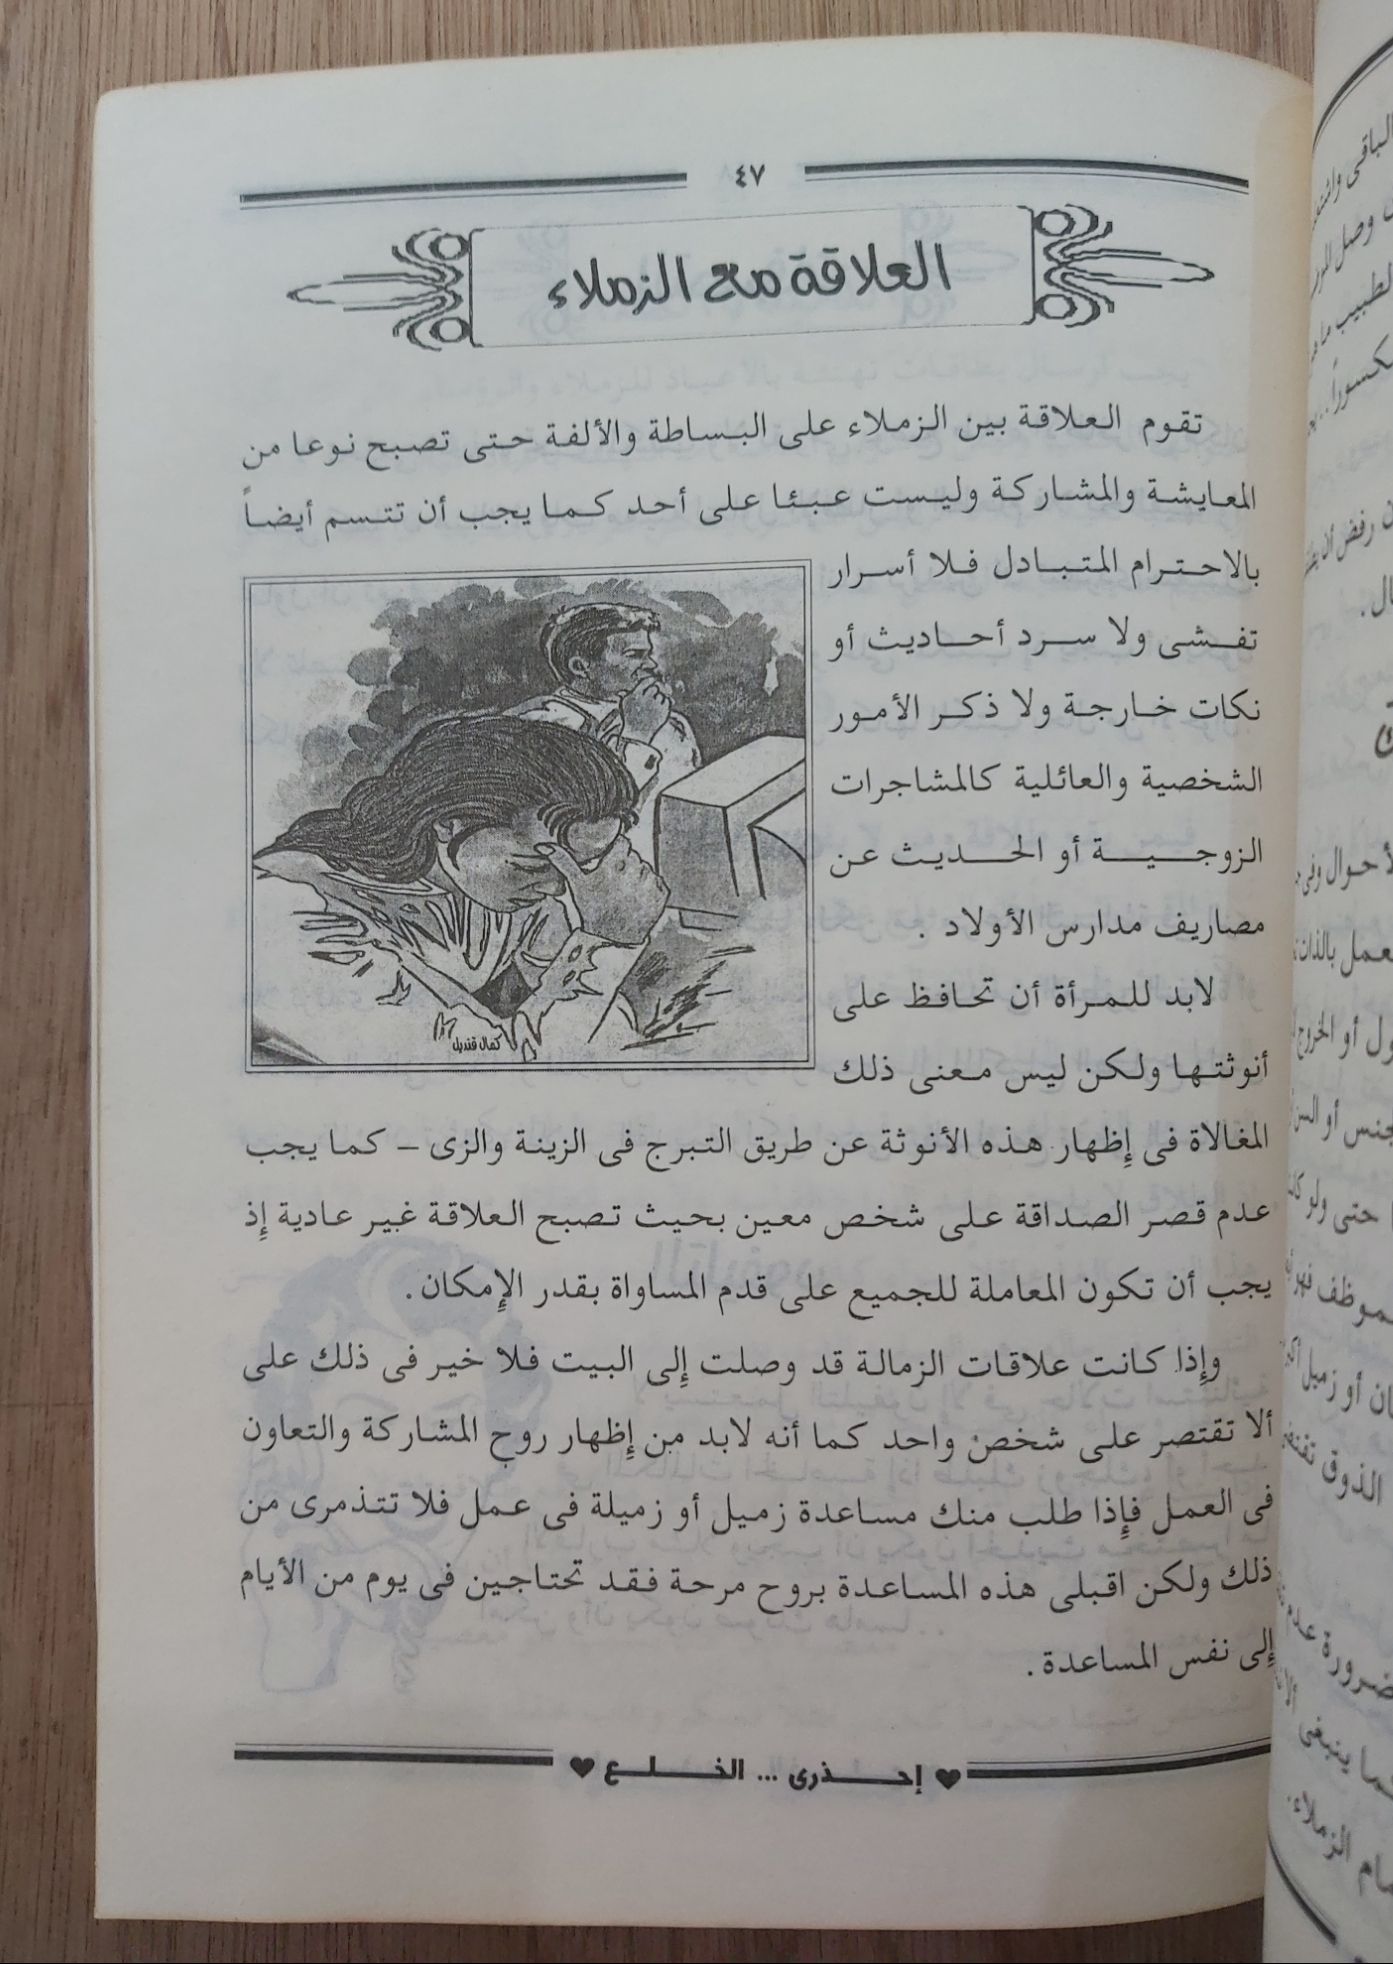 ٤٧
العلاقة مع الزملاء
تقوم العلاقة بين الزملاء على البساطة والألفة حتى تصبح نوعا من
المعايشة والمشاركة وليست عبئا على أحد كما يجب أن تتسم أيضاً
بالاحترام المتبادل فلا أسرار
تفشى ولا سرد أحاديث أو
نكات خارجة ولا ذكر الأمور
الشخصية والعائلية كالمشاجرات
الزوجية أو الحديث عن
مصاريف مدارس الأولاد .
لابد للمرأة أن تحافظ على
أنوثتها ولكن ليس معنى ذلك
المغالاة فى إظهار هذه الأنوثة عن طريق التبرج فى الزينة والزى – كما يجب
عدم قصر الصداقة على شخص معين بحيث تصبح العلاقة غير عادية إذ
يجب أن تكون المعاملة للجميع على قدم المساواة بقدر الإمكان .
وإذا كانت علاقات الزمالة قد وصلت إلى البيت فلا خير فى ذلك على
ألا تقتصر على شخص واحد كما أنه لابد من إظهار روح المشاركة والتعاون
فى العمل فإذا طلب منك مساعدة زميل أو زميلة فى عمل فلا تتذمرى من
ذلك ولكن اقبلى هذه المساعدة بروح مرحة فقد تحتاجين فى يوم من الأيام
إلى نفس المساعدة .
كمال قنديل
إحذرى ... الخلع
الباقى
وصل
الطبيب
رفض أن
أحوال وفى
أو الخروج
أو السن
حتى ولو
أو زميل
الذوق
ينبغى
الزملاء.